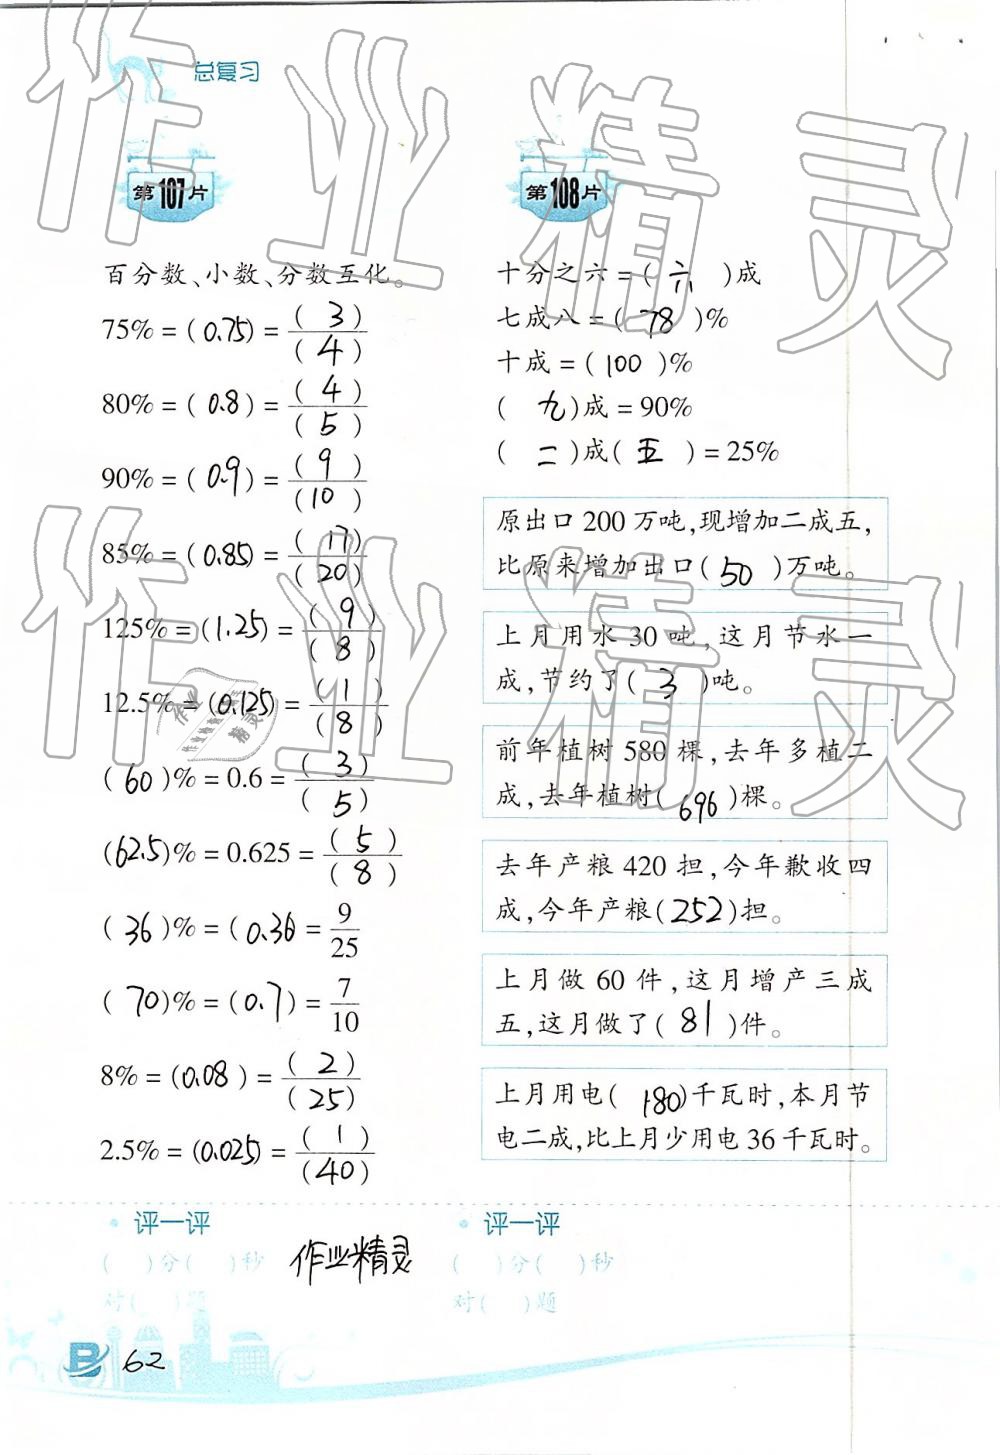 总复习
第107片
百分数、小数、分数互化。
75% = (0.75) = (3)/(4)
80% = (0.8) = (4)/(5)
90% = (0.9) = (9)/(10)
85% = (0.85) = (17)/(20)
125% = (1.25) = (9)/(8)
12.5% = (0.125) = (1)/(8)
(60)% = 0.6 = (3)/(5)
(62.5)% = 0.625 = (5)/(8)
(36)% = (0.36 = 9/25
(70)% = (0.7) = 7/10
8% = (0.08) = (2)/(25)
2.5% = (0.025) = (1)/(40)
评一评
( )分( )秒
对( )题
作业精灵
第108片
十分之六 = (六)成
七成八 = (78)%
十成 = (100)%
(九)成 = 90%
(二)成(五) = 25%
原出口200万吨,现增加二成五,
比原来增加出口(50)万吨。
上月用水30吨,这月节水一
成,节约了(3)吨。
前年植树580棵,去年多植二
成,去年植树(696)棵。
去年产粮420担,今年歉收四
成,今年产粮(252)担。
上月做60件,这月增产三成
五,这月做了(81)件。
上月用电(180)千瓦时,本月节
电二成,比上月少用电36千瓦时。
评一评
( )分( )秒
对( )题
B 62
作业精灵
作业精灵
作业
作业精灵
精灵